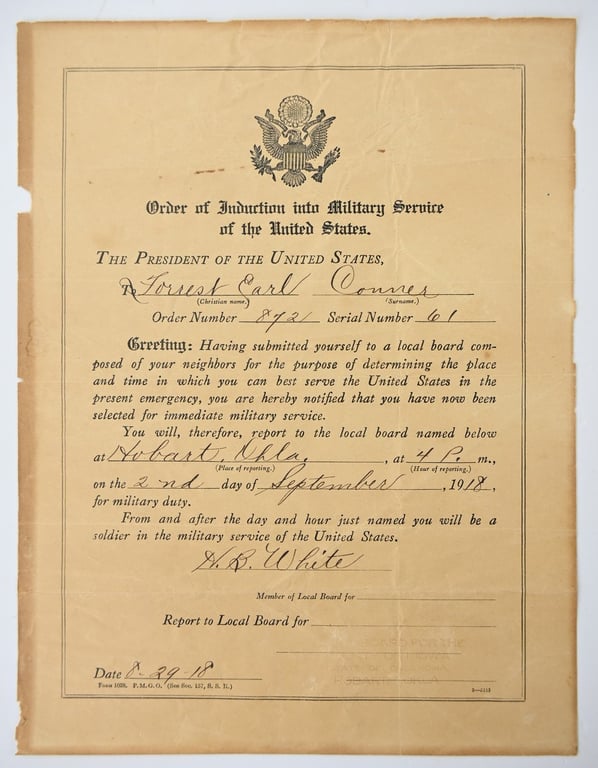 Order of Induction into Military Service
of the United States.
THE PRESIDENT OF THE UNITED STATES,
To Forrest Earl Conner
(Christian name.) (Surname.)
Order Number 872 Serial Number 61
Greeting: Having submitted yourself to a local board com-
posed of your neighbors for the purpose of determining the place
and time in which you can best serve the United States in the
present emergency, you are hereby notified that you have now been
selected for immediate military service.
You will, therefore, report to the local board named below
at Hobart, Okla. , at 4 P. m.,
(Place of reporting.) (Hour of reporting.)
on the 2nd day of September , 1918,
for military duty.
From and after the day and hour just named you will be a
soldier in the military service of the United States.
H. B. White
Member of Local Board for
Report to Local Board for
BOARD FOR THE
Date 8-29-18
Form 1028. P. M. G. O. (See Sec. 157, S. S. R.)